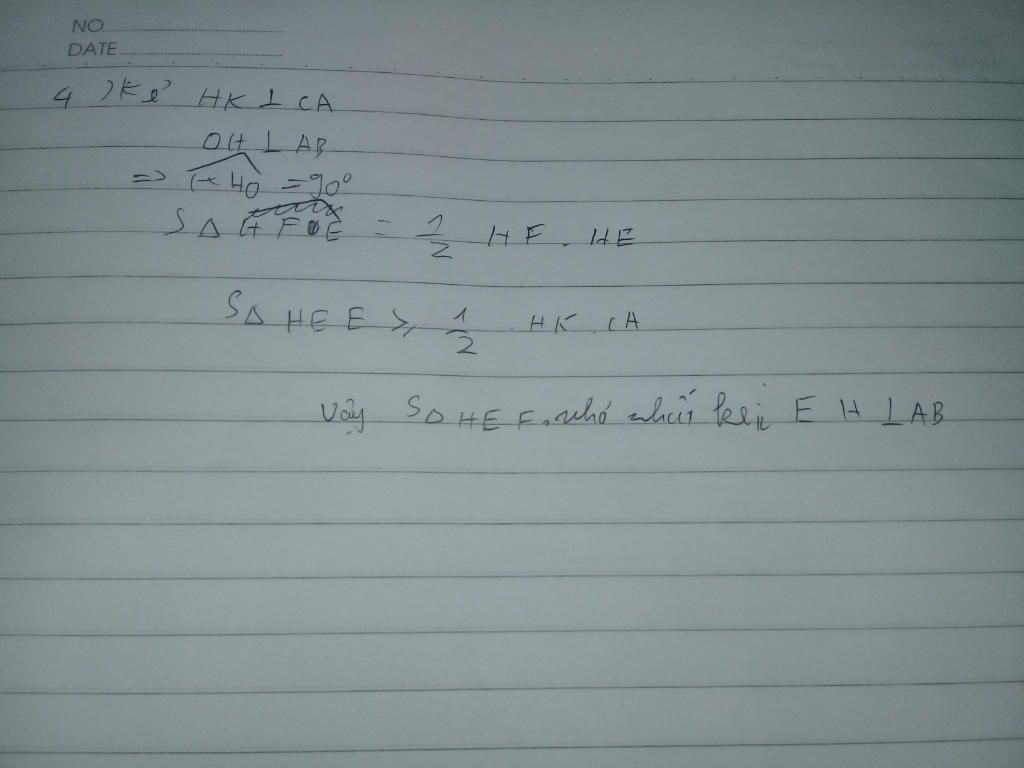 NO
DATE
4 ) Kẻ HK ⊥ CA
OH ⊥ AB
=> = 90°
S Δ = 1/2 HF . HE
S Δ HEE ⩾ 1/2 . HK . CA
Vậy S Δ HEF nhỏ nhất khi E H ⊥ AB